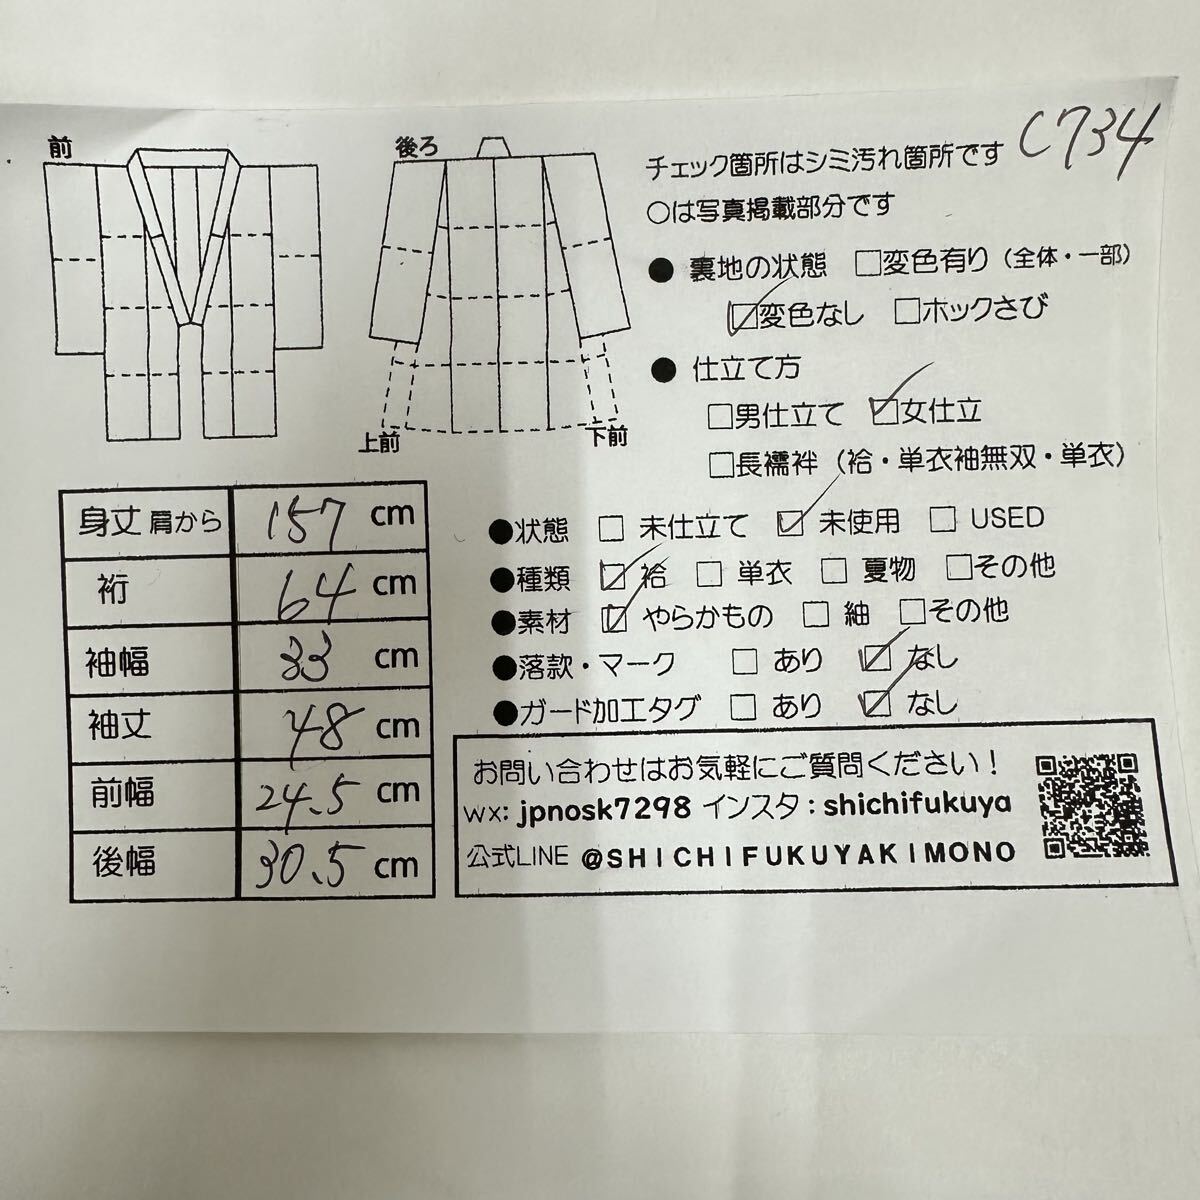 C734
前
後ろ
チェック箇所はシミ汚れ箇所です
○は写真掲載部分です
● 裏地の状態 □変色有り（全体・一部）
☑変色なし □ホックさび
● 仕立て方
□男仕立て ☑女仕立
□長襦袢（袷・単衣袖無双・単衣）
上前
下前
身丈 肩から 157 cm
裄 64 cm
袖幅 33 cm
袖丈 48 cm
前幅 24.5 cm
後幅 30.5 cm
●状態 □ 未仕立て ☑ 未使用 □ USED
●種類 ☑ 袷 □ 単衣 □ 夏物 □その他
●素材 ☑ やらかもの □ 紬 □その他
●落款・マーク □ あり ☑ なし
●ガード加工タグ □ あり ☑ なし
お問い合わせはお気軽にご質問ください！
wx: jpnosk7298 インスタ：shichifukuya
公式LINE @SHICHIFUKUYAKIMONO